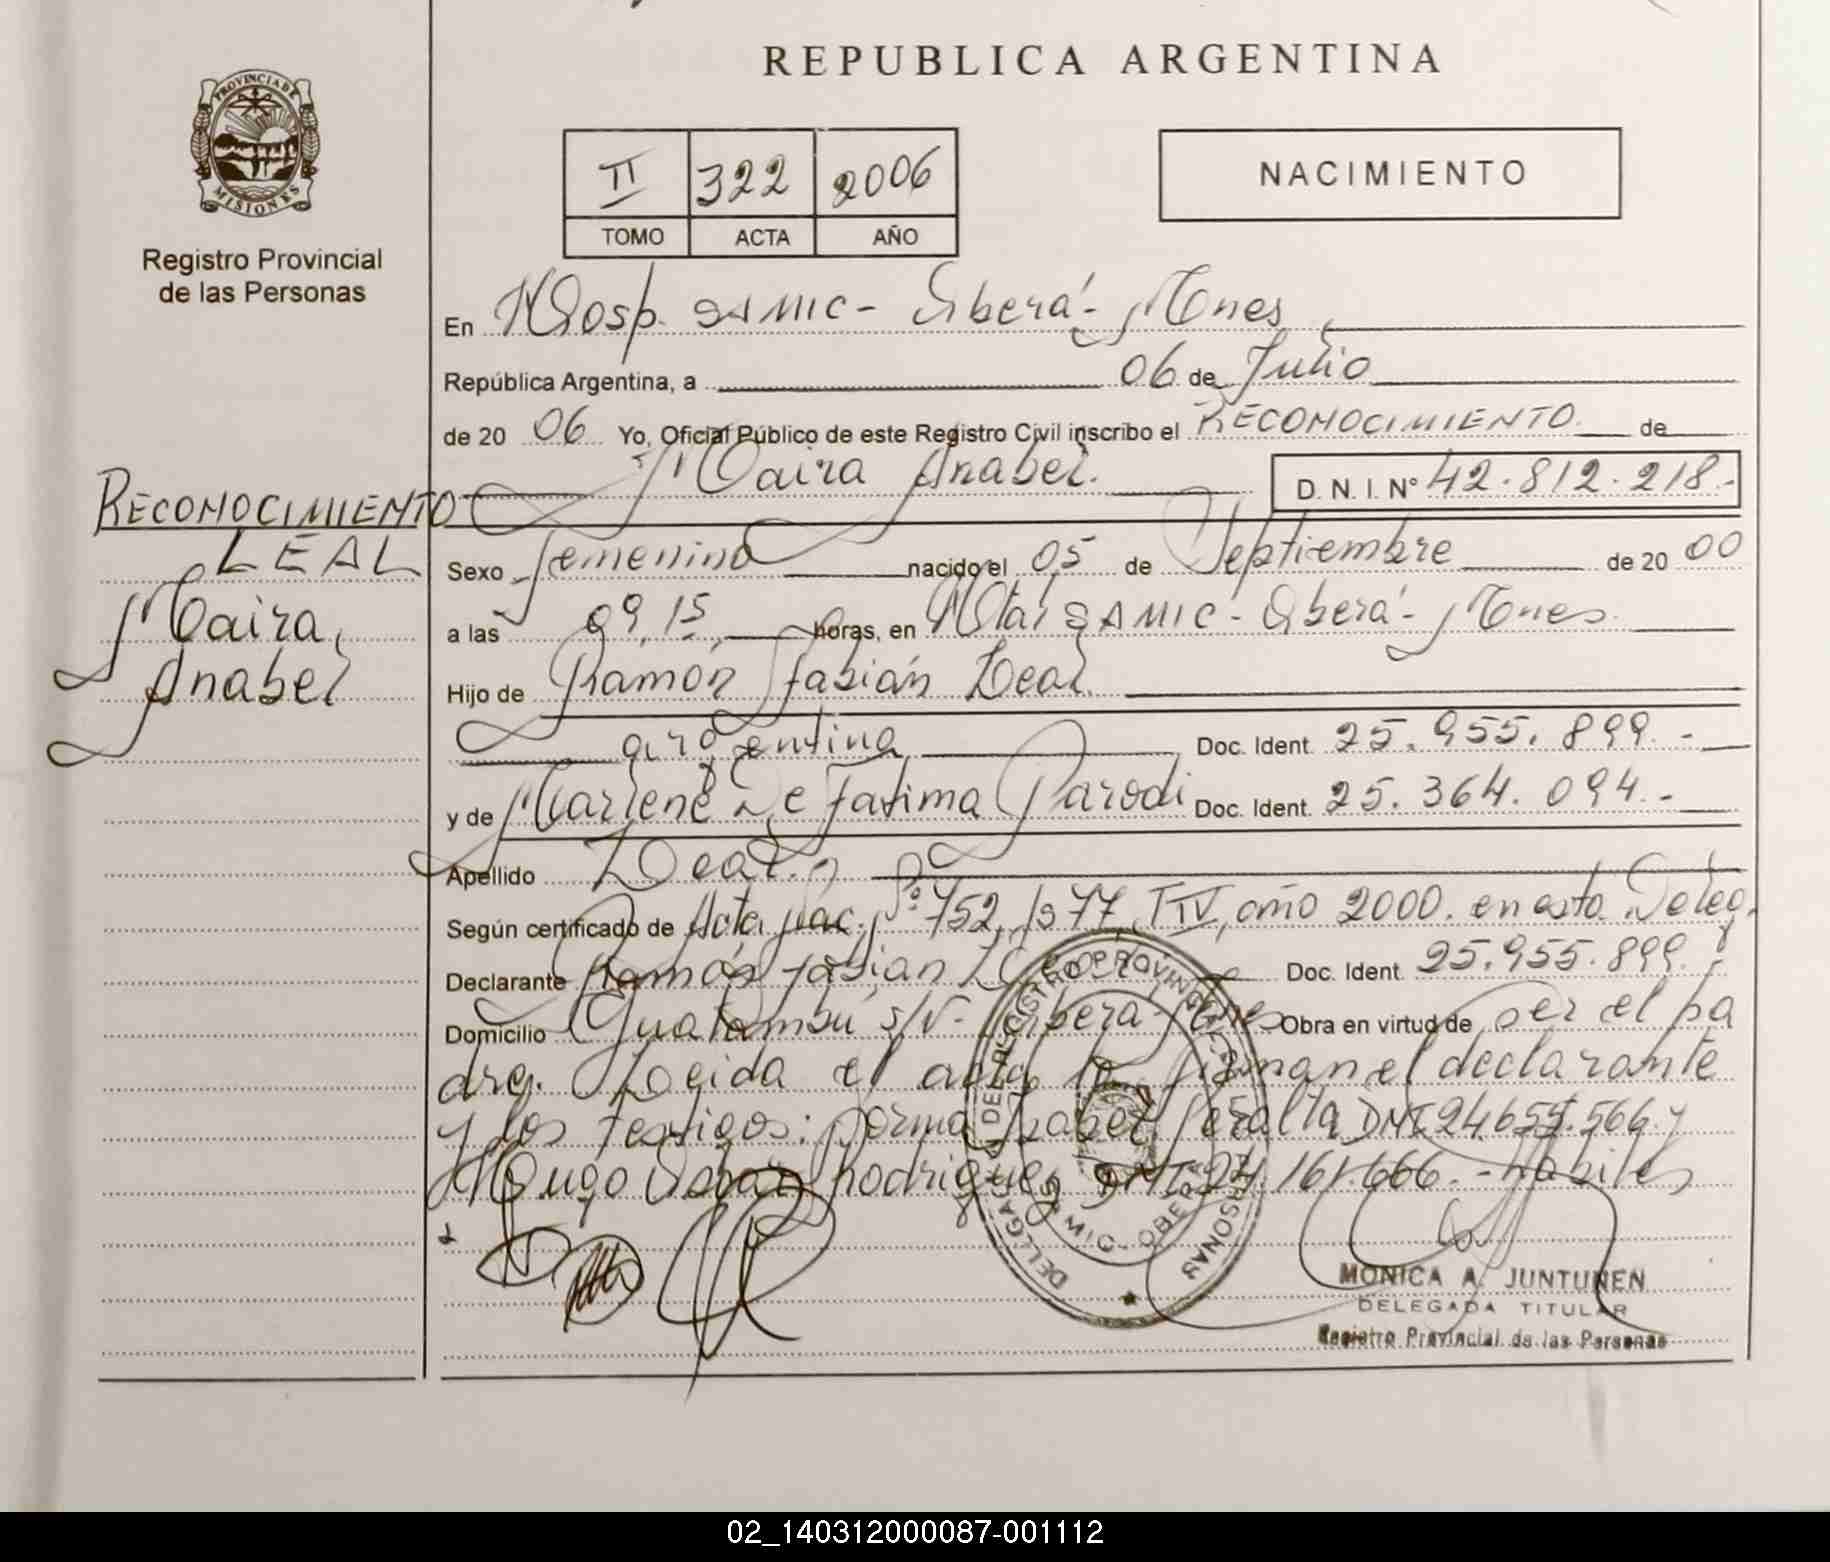 REPUBLICA ARGENTINA
PROVINCIA DE MISIONES
Registro Provincial
de las Personas
II 322 2006
TOMO ACTA AÑO
NACIMIENTO
En Hosp. SAMIC - Oberá - Mnes
República Argentina, a 06 de Julio
de 20 06 Yo, Oficial Público de este Registro Civil inscribo el RECONOCIMIENTO de
Maira Anabel. D. N. I. Nº 42.812.218.-
RECONOCIMIENTO
LEAL
Maira,
Anabel
Sexo femenino nacido el 05 de Septiembre de 20 00
a las 09,15 horas, en Htal SAMIC - Oberá - Mnes.
Hijo de Ramón Fabián Leal.
argentina Doc. Ident. 25.955.899.-
y de Marlene De Fatima Parodi Doc. Ident. 25.364.094.-
Apellido Leal.
Según certificado de Acta Nac. Nº 752, Fº 77, T IV, año 2000. en esta Deleg.
Declarante Ramón Fabián Doc. Ident. 25.955.899.
Domicilio Guatambú s/Nº - Oberá - Mnes Obra en virtud de ser el pa
dre. Leida el acta la firman el declarante
y los testigos: Norma Isabel Peralta DNI 24.655.566 y
Hugo Rodriguez DNI 24.161.666.- habiles
DELEGACION DEL REGISTRO PROVINCIAL DE LAS PERSONAS
SAMIC - OBERA
MONICA A. JUNTUNEN
DELEGADA TITULAR
Registro Provincial de las Personas
02_140312000087-001112